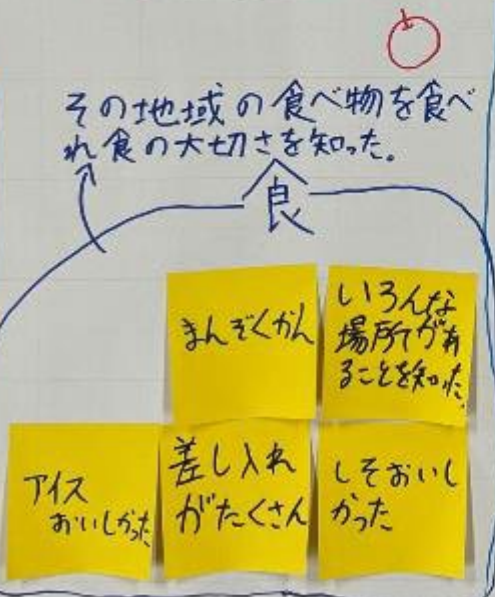 その地域の食べ物を食べ
れ食の大切さを知った。
食
まんぞくかん
いろんな
場所があ
ることを知った。
アイス
おいしかった
差し入れ
がたくさん
しそおいし
かった